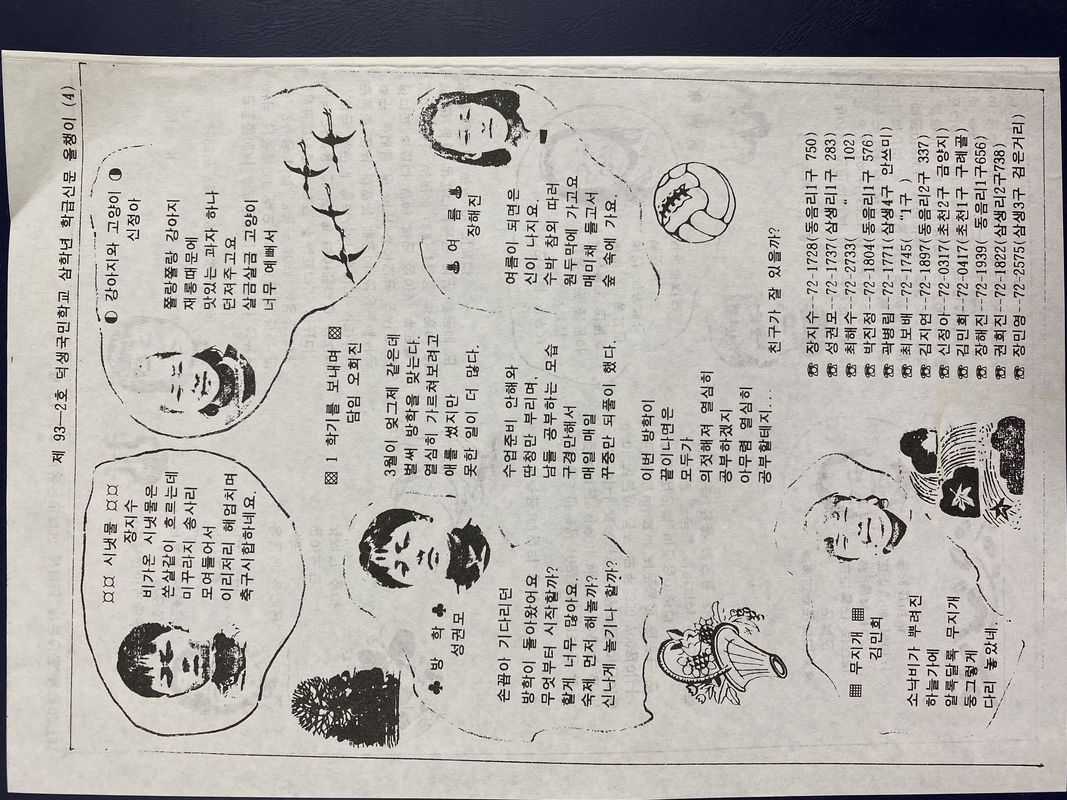 제 93-2호 덕생국민학교 삼학년 학급신문 올챙이 (4)
¤¤ 시냇물 ¤¤
장지수
비가온 시냇물은
쏜살같이 흐르는데
미꾸라지 송사리
모여들어서
이리저리 헤엄치며
축구시합하네요.
◐ 강아지와 고양이 ◑
신정아
쫄랑쫄랑 강아지
재롱때문에
맛있는 과자 하나
던져주고요
살금살금 고양이
너무 예뻐서
♣ 방 학 ♣
성권모
손꼽아 기다리던
방학이 돌아왔어요
무엇부터 시작할까?
할게 너무 많아요.
숙제 먼저 해놀까?
신나게 놀기나 할까?
▩ 1 학기를 보내며 ▩
담임 오희진
3월이 엊그제 같은데
벌써 방학을 맞는다.
열심히 가르쳐보려고
애를 썼지만
못한 일이 더 많다.
수업준비 안해와
딴청만 부리며,
남들 공부하는 모습
구경만해서
매일 매일
꾸중만 되풀이 했다.
이번 방학이
끝이나면은
모두가
의젓해져 열심히
공부하겠지
아무렴 열심히
공부할테지...
♨ 여 름 ♨
장해진
여름이 되면은
신이 나지요.
수박 참외 따러
원두막에 가고요
매미채 들고서
숲 속에 가요.
▦ 무지개 ▦
김민희
소낙비가 뿌려진
하늘가에
알록달록 무지개
둥그렇게
다리 놓았네.
친구가 잘 있을까?
☎ 장지수--72-1728(동음리1구 750)
☎ 성권모--72-1737(삼생리1구 283)
☎ 최해수--72-2733( " 102)
☎ 박진정--72-1804(동음리1구 576)
☎ 곽병림--72-1771(삼생4구 안쓰미)
☎ 최보배--72-1745( "1구 )
☎ 김지연--72-1897(동음리2구 337)
☎ 신정아--72-0317(초천2구 금양지)
☎ 김민희--72-0417(초천1구 구레골)
☎ 장해진--72-1939( 동음리1구656)
☎ 권희진--72-1822(삼생리2구738)
☎ 장민영--72-2575(삼생3구 검은거리)